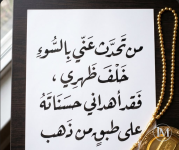 من تحدّث عنّي بِالسُّوءِ
خَلْفَ ظَهرِي ،
فَقد أهداني حسَنَاتَهُ
على طبقٍ من ذَهب